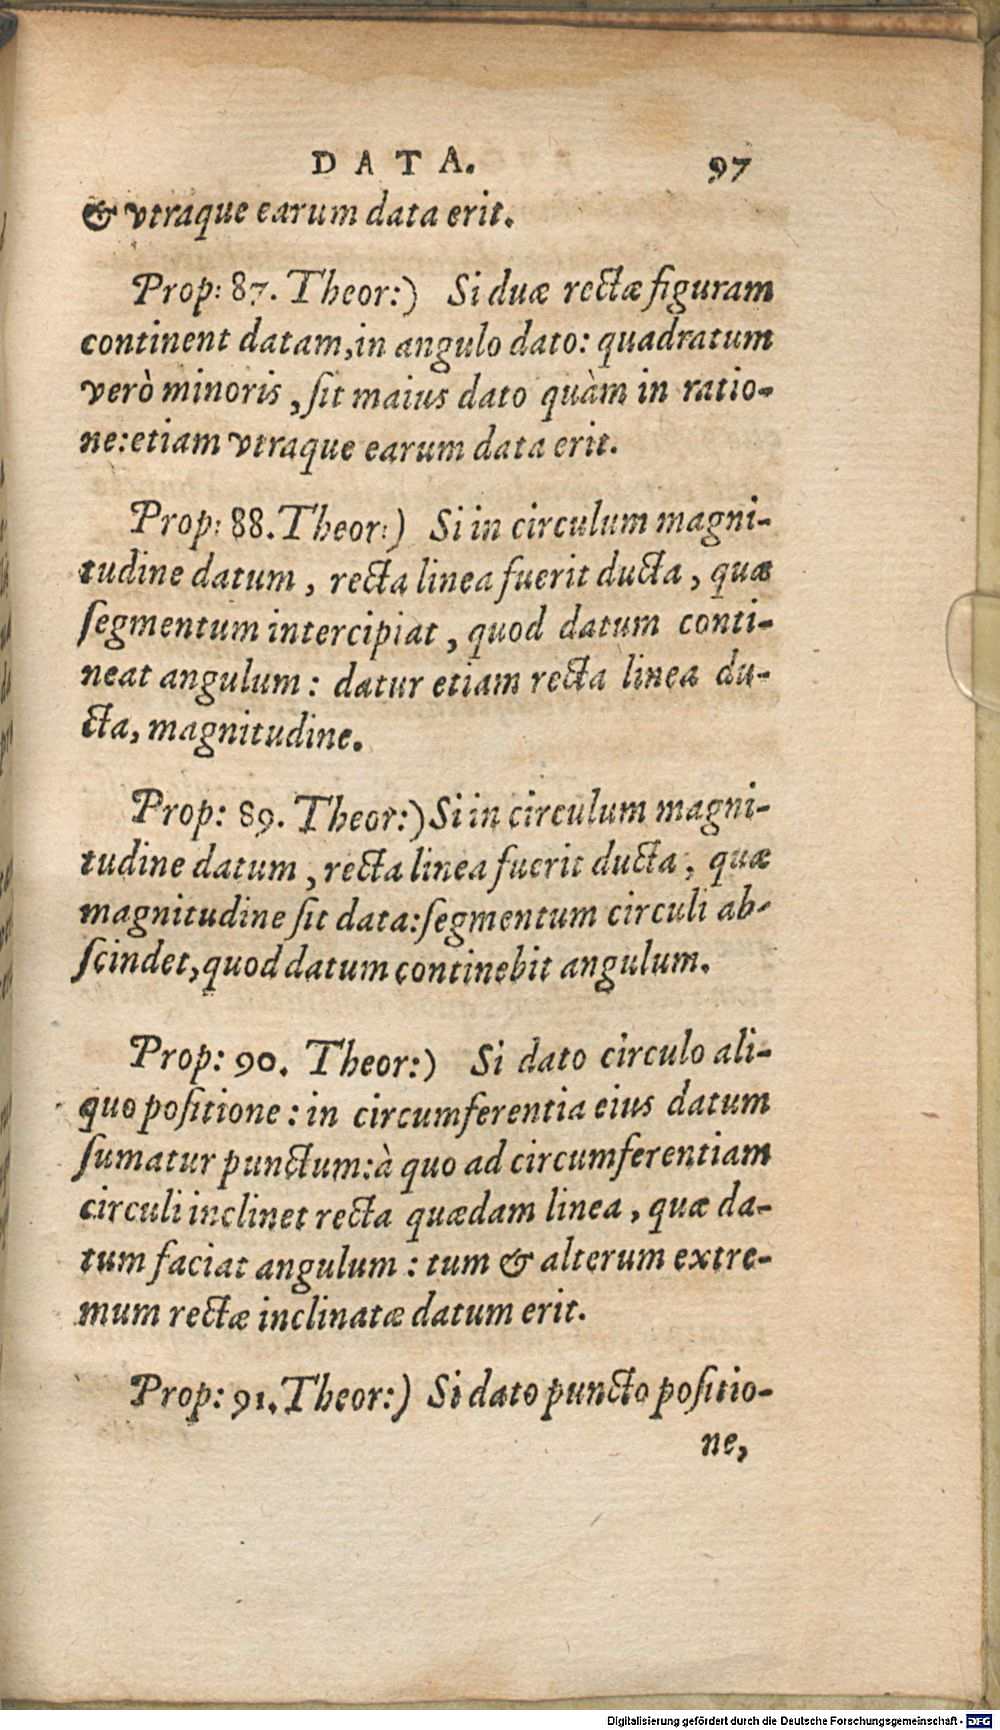 DATA. 97
& vtraque earum data erit.
Prop: 87. Theor:) Si duæ rectæ figuram
continent datam,in angulo dato: quadratum
verò minoris , ſit maius dato quàm in ratio-
ne:etiam vtraque earum data erit.
Prop: 88. Theor:) Si in circulum magni-
tudine datum , recta linea fuerit ducta , quæ
ſegmentum intercipiat , quod datum conti-
neat angulum : datur etiam recta linea du-
cta, magnitudine.
Prop: 89. Theor:) Si in circulum magni-
tudine datum , recta linea fuerit ducta , quæ
magnitudine ſit data:ſegmentum circuli ab-
ſcindet,quod datum continebit angulum.
Prop: 90. Theor:) Si dato circulo ali-
quo poſitione : in circumferentia eius datum
ſumatur punctum:à quo ad circumferentiam
circuli inclinet recta quædam linea , quæ da-
tum faciat angulum : tum & alterum extre-
mum rectæ inclinatæ datum erit.
Prop: 91. Theor:) Si dato puncto poſitio-
ne,
Digitalisierung gefördert durch die Deutsche Forschungsgemeinschaft - DFG